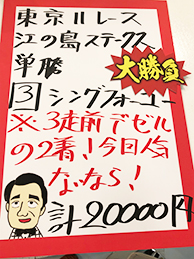 東京11レース
江の島ステークス
単勝
大勝負
3 シングフォーユー
※3走前デゼル
の2着!今日人気
ないなら!
計20000円